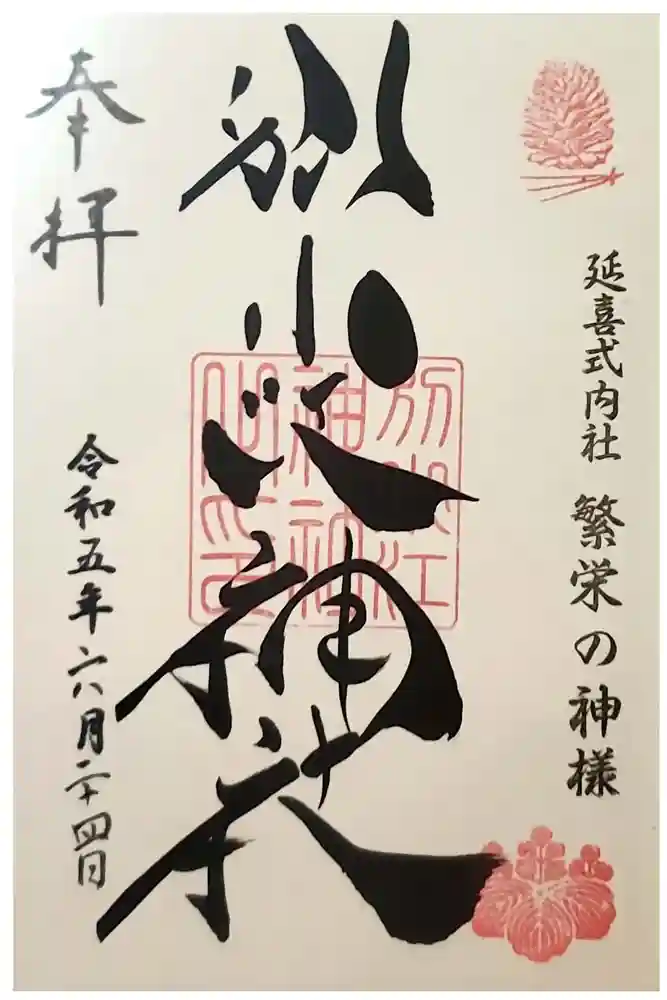 延喜式内社 繁栄の神様
別小江神社
奉拝
令和五年六月二十四日